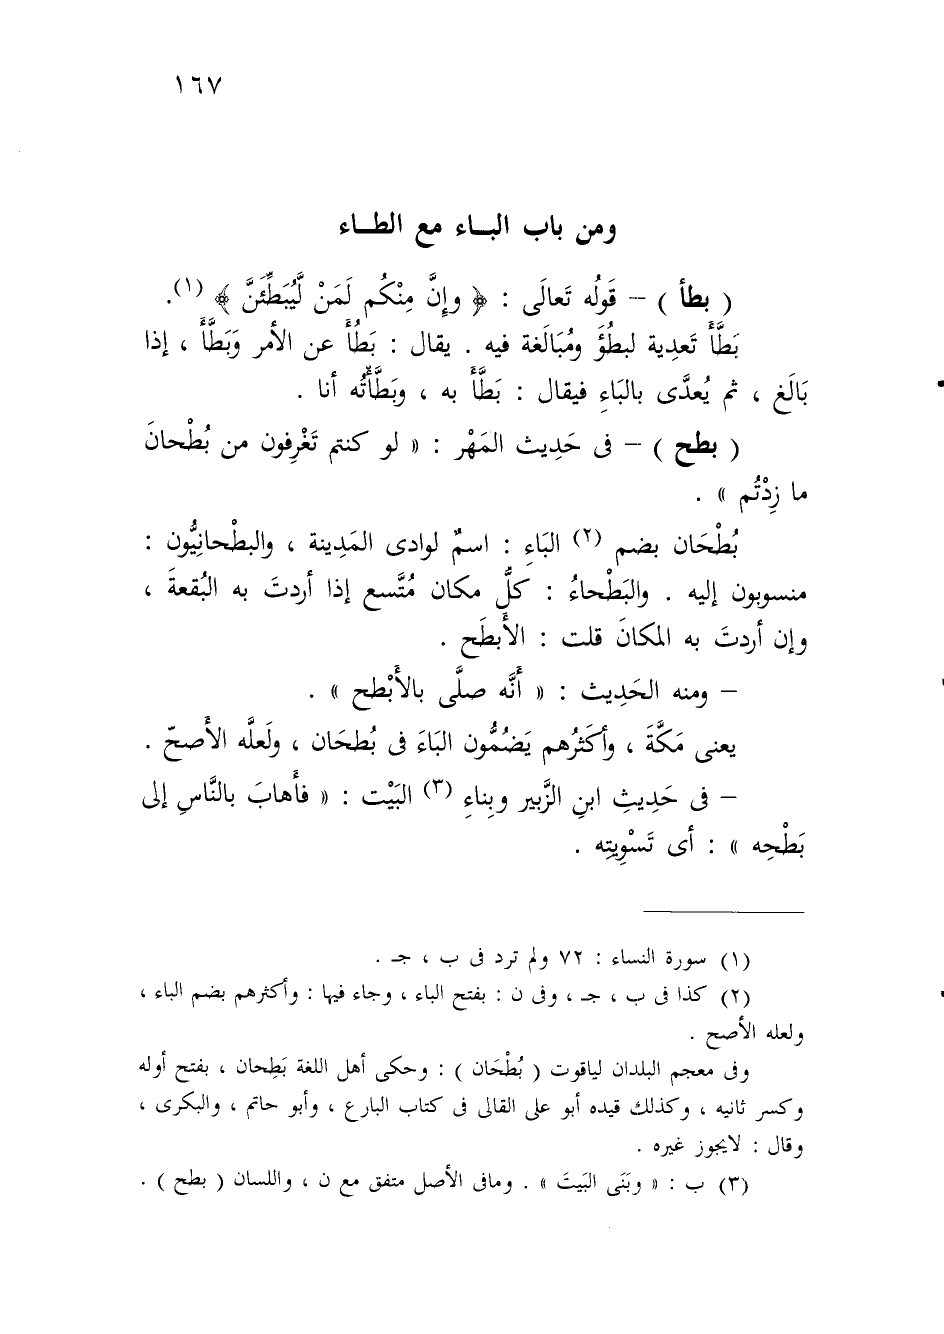 ١٦٧
ومن باب البــاء مع الطــاء
( بطأ ) – قَولُه تَعالَى : ﴿ وإِنَّ مِنْكُم لَمَنْ لَّيُبَطِّئَنَّ ﴾ (١).
بَطَّأَ تَعدِية لبطُؤَ ومُبَالَغة فيه . يقال : بَطُأَ عن الأمر وَبَطَّأَ ، إذا
بَالَغ ، ثم يُعدَّى بالبَاءِ فيقال : بَطَّأَ به ، وبَطَّأْتُه أنا .
( بطح ) – فى حَدِيث المَهْر : « لو كنتم تَغْرِفون من بُطْحانَ
ما زِدْتُم » .
بُطْحَان بضم (٢) البَاءِ : اسمٌ لوادى المَدِينة ، والبطْحانِيُّون :
منسوبون إليه . والبَطْحاءُ : كلُّ مكان مُتَّسع إذا أردتَ به البُقعةَ ،
وإن أردتَ به المكانَ قلت : الأَبطَح .
– ومنه الحَدِيث : « أَنَّه صلَّى بالأَبْطح » .
يعنى مَكَّةَ ، وأكثَرُهم يَضمُّون البَاءَ فى بُطحَان ، ولَعلَّه الأَصحّ .
– فى حَدِيثِ ابنِ الزَّبير وبِناءِ (٣) البَيْت : « فأَهابَ بالنَّاسِ إلى
بَطْحِه » : أى تَسْوِيتِه .
(١) سورة النساء : ٧٢ ولم ترد فى ب ، جـ .
(٢) كذا فى ب ، جـ ، وفى ن : بفتح الباء ، وجاء فيها : وأكثرهم بضم الباء ،
ولعله الأصح .
وفى معجم البلدان لياقوت ( بُطْحَان ) : وحكى أهل اللغة بَطِحان ، بفتح أوله
وكسر ثانيه ، وكذلك قيده أبو على القالى فى كتاب البارع ، وأبو حاتم ، والبكرى ،
وقال : لايجوز غيره .
(٣) ب : « وبَنَى البَيتَ » . ومافى الأصل متفق مع ن ، واللسان ( بطح ) .